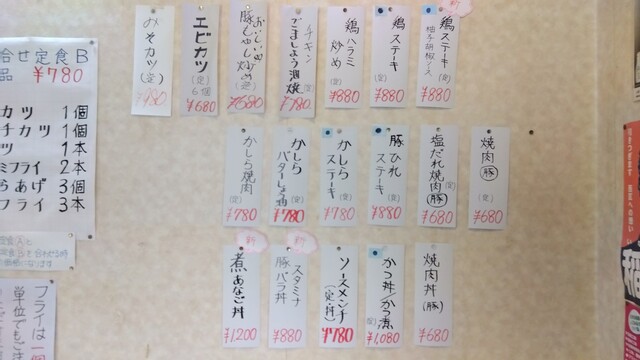 新
鶏ステーキ
柚子胡椒ソース
(定)
¥880
鶏ステーキ
(定)
¥880
鶏ハラミ
炒め
(定)
¥880
チキン
ごましょう油焼
(定)
¥780
おいしいよ
豚しゃぶ炒め
(定)
¥680
エビカツ
(定)
6個
¥680
みそカツ(定)
¥980
焼肉(豚)
(定)
¥680
塩だれ焼肉(豚)
(定)
¥680
豚ひれ
ステーキ
(定)
¥880
かしら
ステーキ
(定)
¥780
かしら
バターしょう油
(定)
¥780
かしら焼肉
(定)
¥780
焼肉丼(豚)
¥680
かつ丼/かつ煮
(定)
¥1,080
ソースメンチ
(定、丼)
¥780
新
スタミナ
豚バラ丼
¥880
新
煮あなご丼
¥1,200
合せ定食B
品 ¥780
カツ 1個
チカツ 1個
ツ 1本
ミフライ 2本
らあげ 3個
フライ 3本
フライは一個
単位でもご注